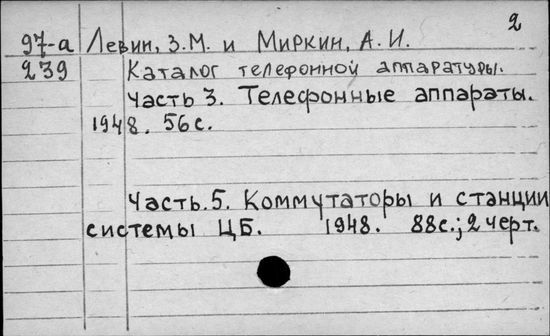 2
97-а Левин, З.М. и Миркин, А.И.
239 Каталог телефонной аппаратуры.
Часть 3. Телефонные аппараты.
1948. 56с.
Часть.5. Коммутаторы и станции
системы ЦБ. 1948. 88с.; 2 черт.